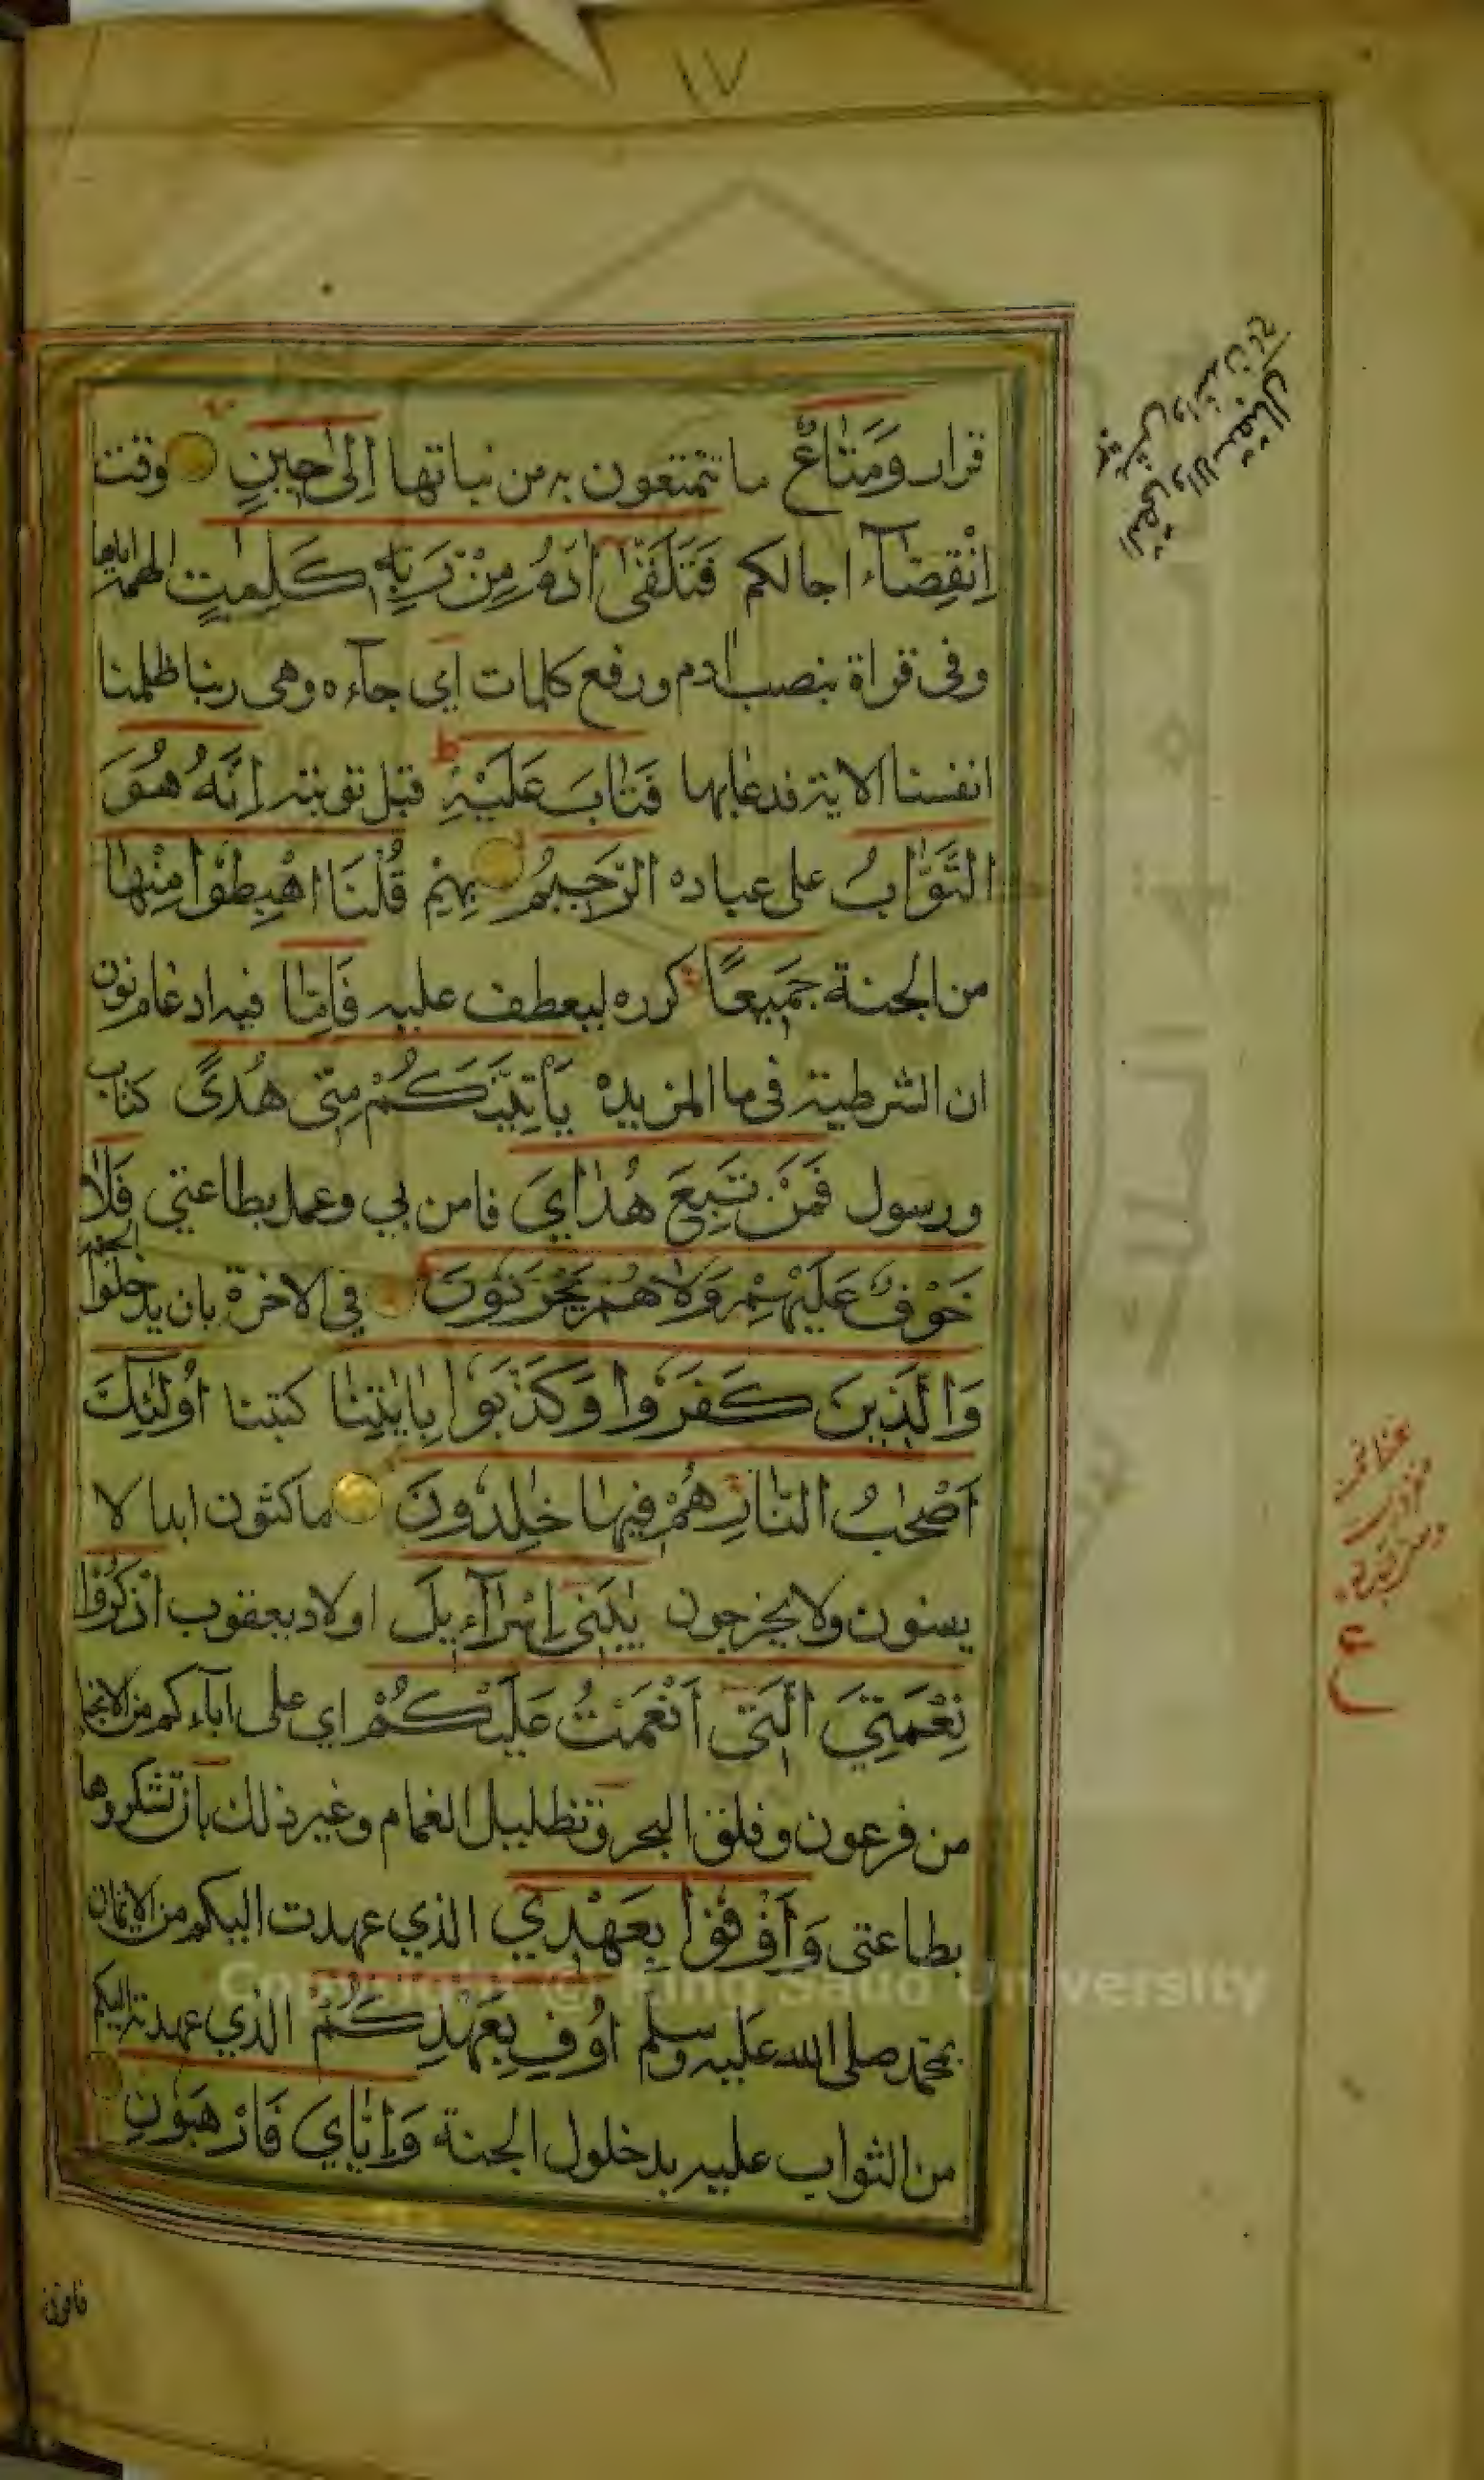 ١٧
قرار وَمَتَاعٌ ما تتمتعون به من نباتها اِلىٰ حِينٍ وقت
اِنْقِضَآء اجالكم فَتَلَقّٰى اٰدَمُ مِنْ رَبِّهٖ كَلِمٰتٍ الهمه اياها
وفى قراة بنصب ادم ورفع كلمات اي جآءه وهى ربنا ظلمنا
انفسنا الاية فدعا بها فَتَابَ عَلَيْهِ ط قبل توبته اِنَّهُ هُوَ
التَّوَّابُ على عباده الرَّحِيمُ بهم قُلْنَا اهْبِطُوا مِنْهَا
من الجنة جَمِيعًا كرره ليعطف عليه فَاِمَّا فيه ادغام نون
ان الشرطية فى ما المزيده يَأْتِيَنَّكُمْ مِنِّى هُدًى كتاب
ورسول فَمَنْ تَبِعَ هُدَايَ فامن بي وعمل بطاعتي فَلَا
خَوْفٌ عَلَيْهِمْ وَلَا هُمْ يَحْزَنُونَ في الاخرة بان يدخلوا الجنة
وَالَّذِينَ كَفَرُوا وَكَذَّبُوا بِاٰيٰتِنَا كتبنا اُولٰٓئِكَ
اَصْحٰبُ النَّارِ هُمْ فِيهَا خٰلِدُونَ ماكثون ابدا لا
يفنون ولا يخرجون يٰبَنِى اِسْرَآءِيلَ اولاد يعقوب اذْكُرُوا
نِعْمَتِيَ الَّتِى اَنْعَمْتُ عَلَيْكُمْ اي على اباءكم من الانجا
من فرعون وفلق البحر وتظليل الغمام وغير ذلك بان تشكروها
بطاعتى وَاَوْفُوا بِعَهْدِي الذي عهدت اليكم من الايمان
بمحمد صلى الله عليه وسلم اُوفِ بِعَهْدِكُمْ الذي عهدته اليكم
من الثواب عليه بدخلول الجنة وَاِيَّايَ فَارْهَبُونِ
ع
Copyright © King Saud University